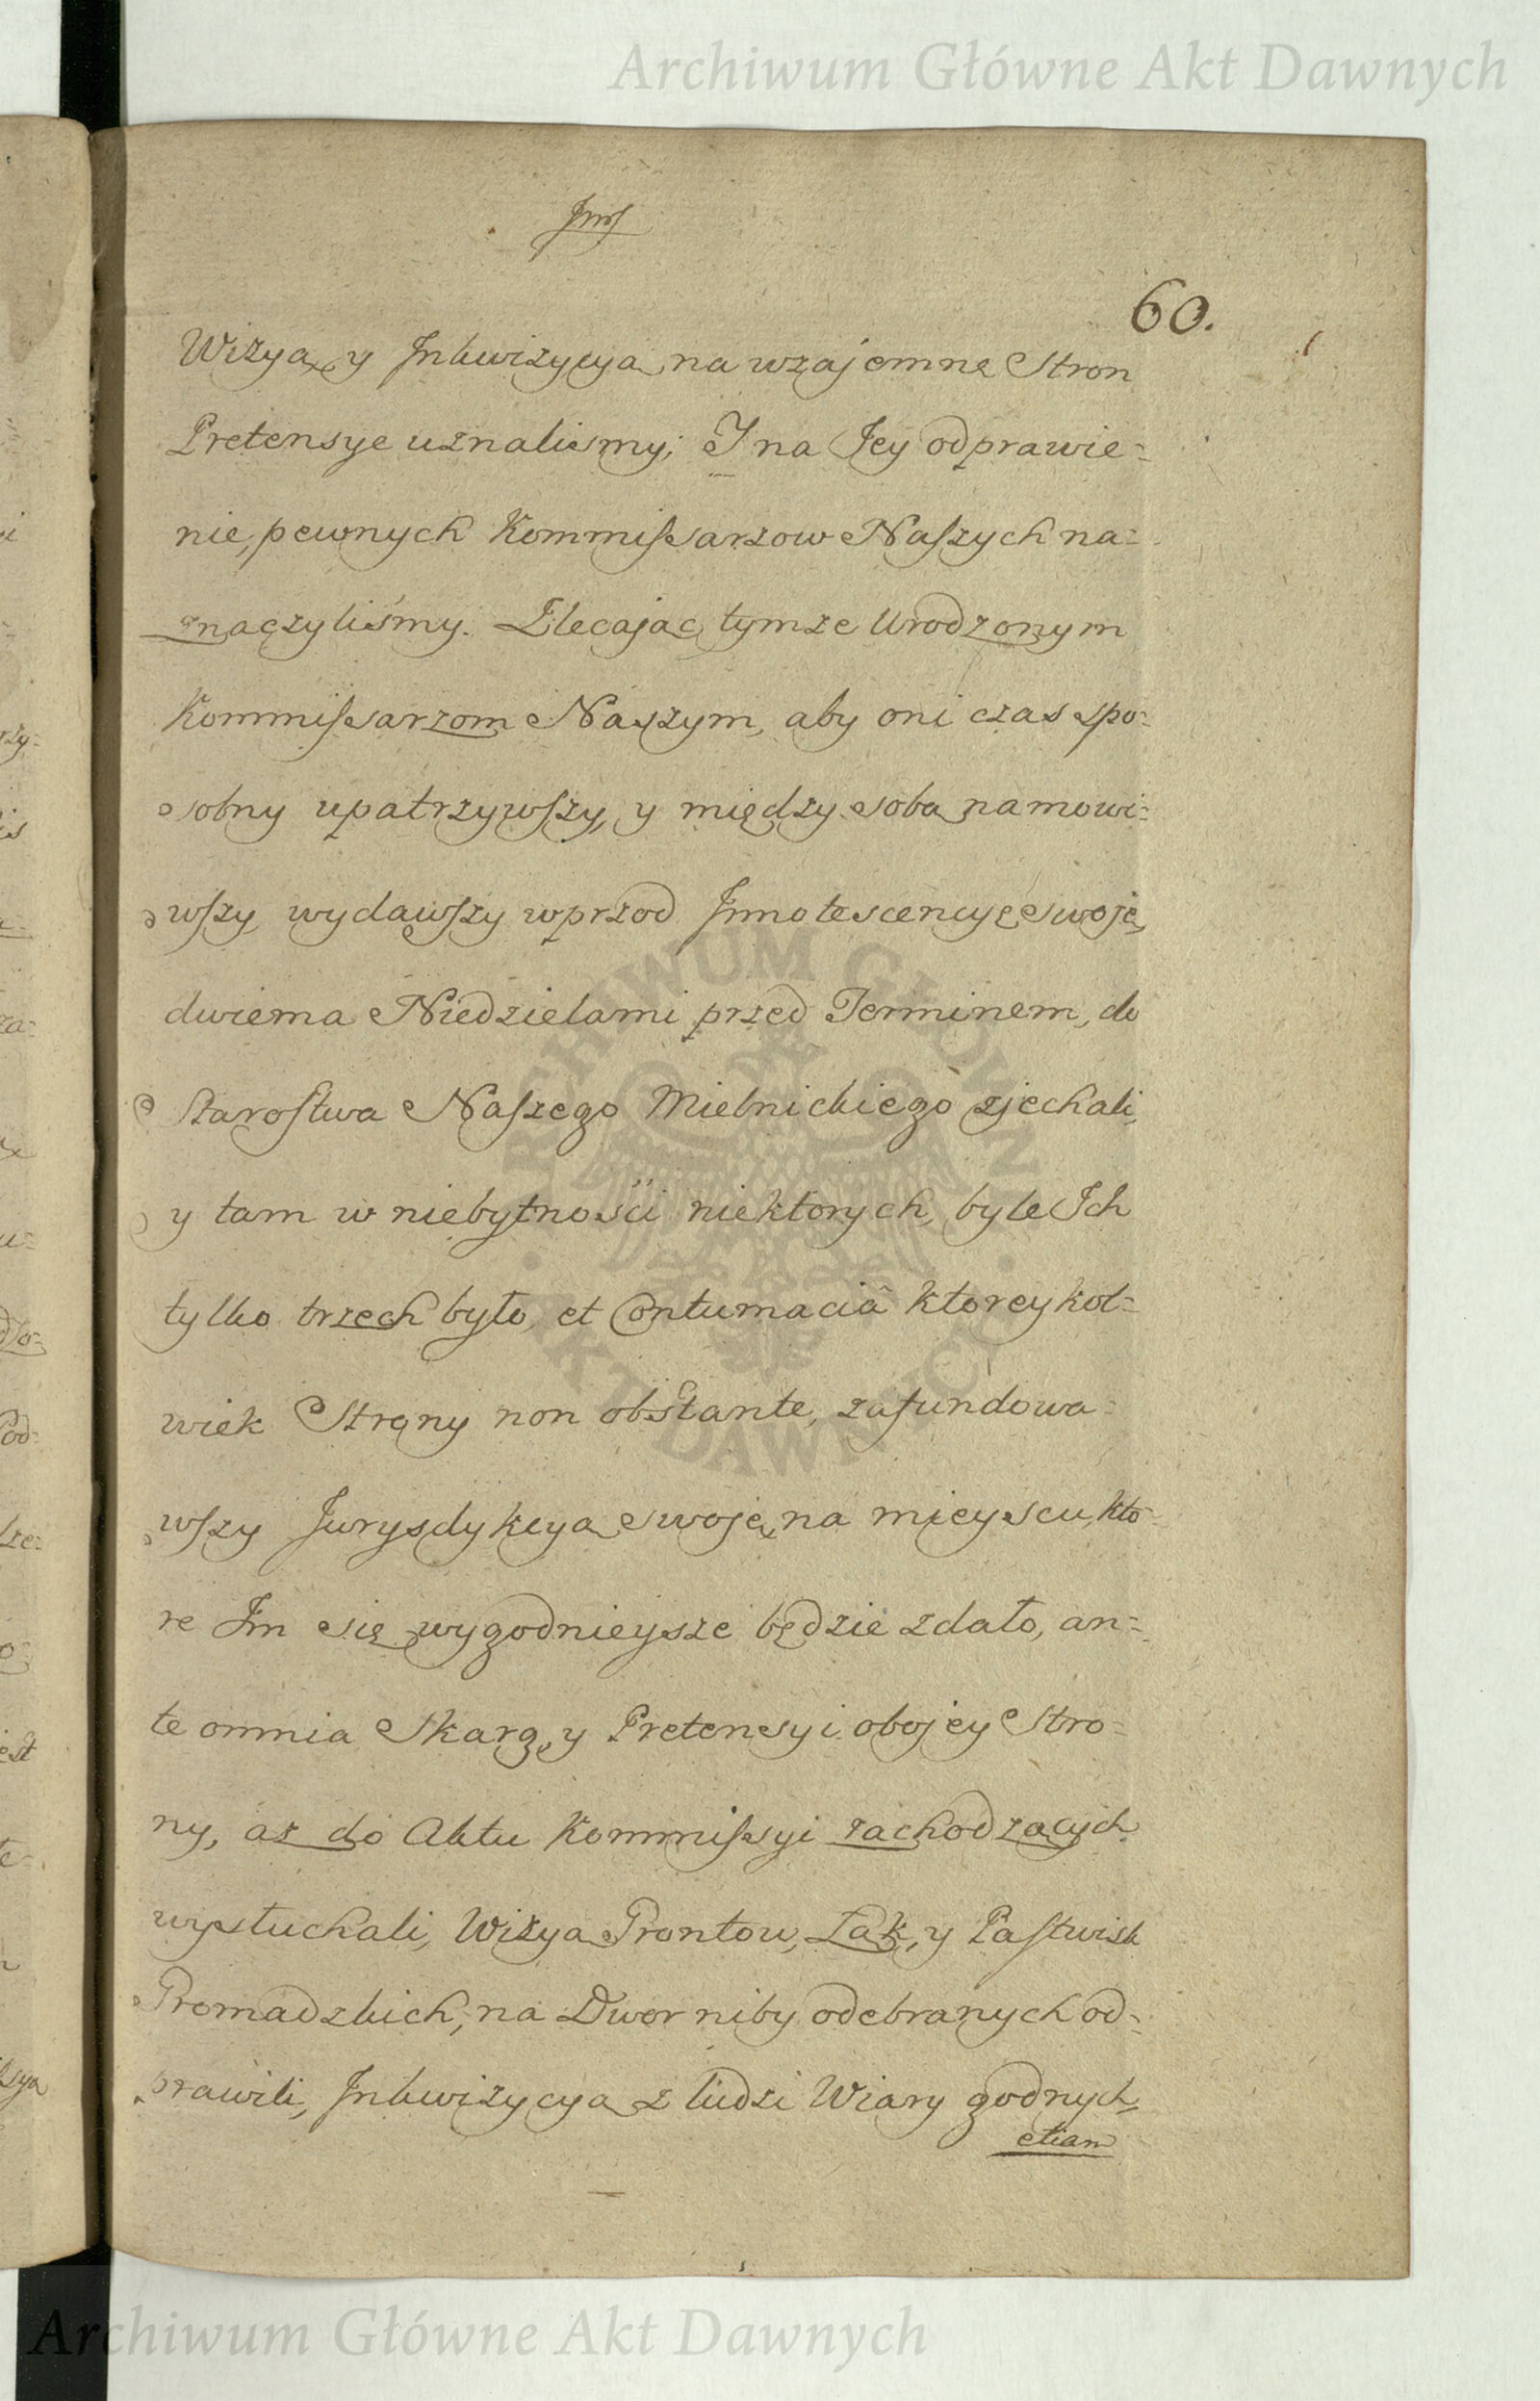 Archiwum Główne Akt Dawnych
60.
Wizyą y Inkwizycyą na wzajemne Stron
Pretensye uznaliśmy; I na Jey odprawie=
nie, pewnych Kommissarzow Naszych na=
znaczyliśmy. Zlecając tymże Urodzonym
Kommissarzom Naszym, aby oni czas spo=
sobny upatrzywszy, y między sobą namowi=
wszy, wydawszy wprzod Innotescencyę swoję,
dwiema Niedzielami przed Terminem, do
Starostwa Naszego Mielnickiego zjechali,
y tam w niebytności niektorych, byle Ich
tylko trzech było, et Contumaciâ ktoreykol=
wiek Strony non obstante, zafundowa=
wszy Jurysdykcyą swoję, na mieyscu, kto=
re Im się wygodnieysze będzie zdało, an=
te omnia Skarg, y Pretensyi obojey Stro=
ny, aż do Aktu Kommissyi zachodzących
wysłuchali, Wizyą Grontow, Łąk, y Pastwisk
Gromadzkich, na Dwor niby odebranych od=
prawili, Inkwizycyą z ludzi Wiary godnych,
etiam
ARCHIWUM GŁÓWNE AKT DAWNYCH
Archiwum Główne Akt Dawnych